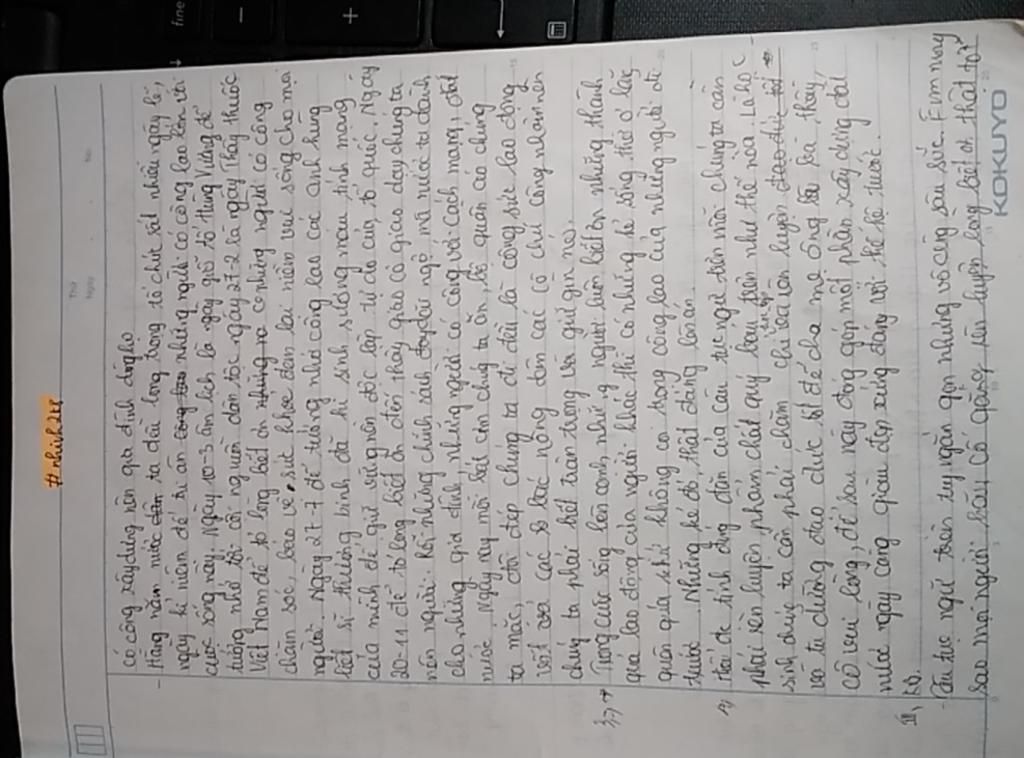 #nhinh2k8
Thứ
Ngày
No.
có công xây dựng nên gia đình dòng họ
- Hàng năm nước ta đều long trọng tổ chức rất nhiều ngày lễ,
ngày kỉ niệm để tri ân những người có công lao lớn với
cuộc sống này. Ngày 10-3 âm lịch là ngày giỗ tổ Hùng Vương để
tưởng nhớ tới cội nguồn dân tộc ngày 27-2 là ngày Thầy thuốc
Việt Nam để tỏ lòng biết ơn những người có công
chăm sóc, bảo vệ sức khỏe đem lại niềm vui sống cho mọi
người. Ngày 27-7 để tưởng nhớ công lao các anh hùng
liệt sĩ thương binh đã hi sinh xương máu tính mạng
của mình để giữ vững nền độc lập tự do của tổ quốc. Ngày
20-11 để tỏ lòng biết ơn đến thầy giáo cô giáo dạy chúng ta
nên người. Rồi những chính sách đãi ngộ mà nước ta dành
cho những gia đình, những người có công với cách mạng, đất
nước. Ngày nay mỗi bát cơm chúng ta ăn, bộ quần áo chúng
ta mặc, đôi dép chúng ta đi đều là công sức lao động
vất vả các bác nông dân các cô chú công nhân nên
chúng ta phải biết trân trọng và giữ gìn nó.
Trong cuộc sống bên cạnh những người luôn biết ơn những thành
quả lao động của người khác thì có những kẻ sống thờ ơ lãng
quên quá khứ không coi trọng công lao của những người đi
trước. Những kẻ đó, thật đáng lên án.
Từ tính đúng đắn của câu tục ngữ trên mỗi chúng ta cần
phải rèn luyện phẩm chất quý báu trên như thế nào. Là học
sinh chúng ta cần phải chăm chỉ học tập rèn luyện
và tu dưỡng đạo đức tốt để cha mẹ ông bà thầy,
cô vui lòng, để sau này đóng góp một phần xây dựng đất
nước ngày càng giàu đẹp xứng đáng với thế hệ trước.
III, KB.
- Câu tục ngữ trên tuy ngắn gọn nhưng vô cùng sâu sắc. Em mong
sao mọi người hãy cố gắng rèn luyện lòng biết ơn thật tốt
KOKUYO